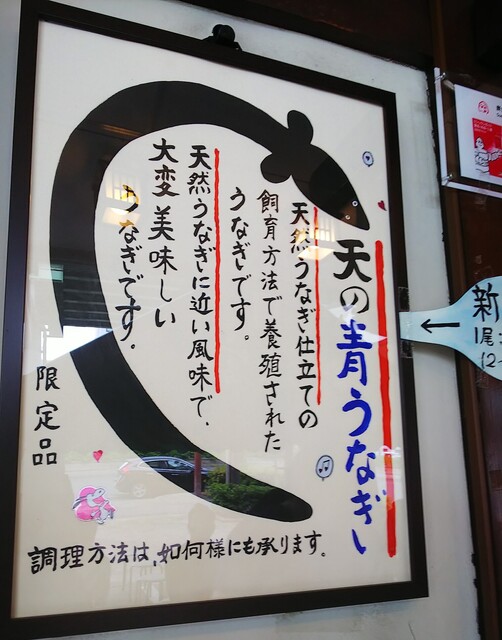 天の青うなぎ
天然うなぎ仕立ての
飼育方法で養殖された
うなぎです。
天然うなぎに近い風味で、
大変美味しい
うなぎです。
限定品
調理方法は、如何様にも承ります。
新
1尾